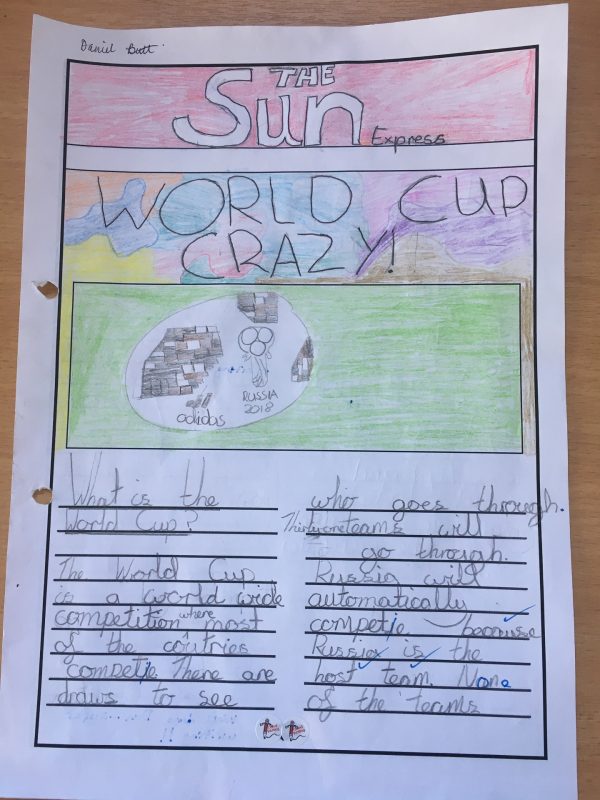 Daniel Butt
THE
Sun
Express
WORLD CUP
CRAZY!
adidas
RUSSIA
2018
What is the
World Cup?
The World Cup
is a world wide
competition where most
of the coutries
compete. There are
draws to see
who goes through.
Thirty one teams will
go through.
Russia will
automatically
compete because
Russia is the
host team. None
of the teams